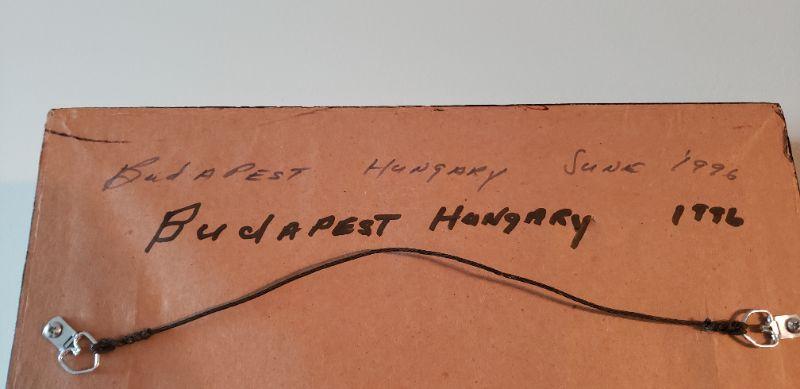 BudAPEST HUNGARY JUNE 1996
BudAPEST HUNGARY 1996